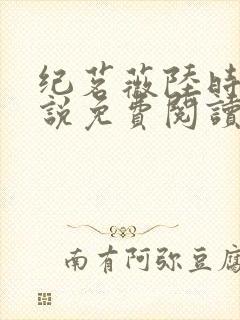 纪茗薇陸時
説免費閱讀
南有阿弥豆腐